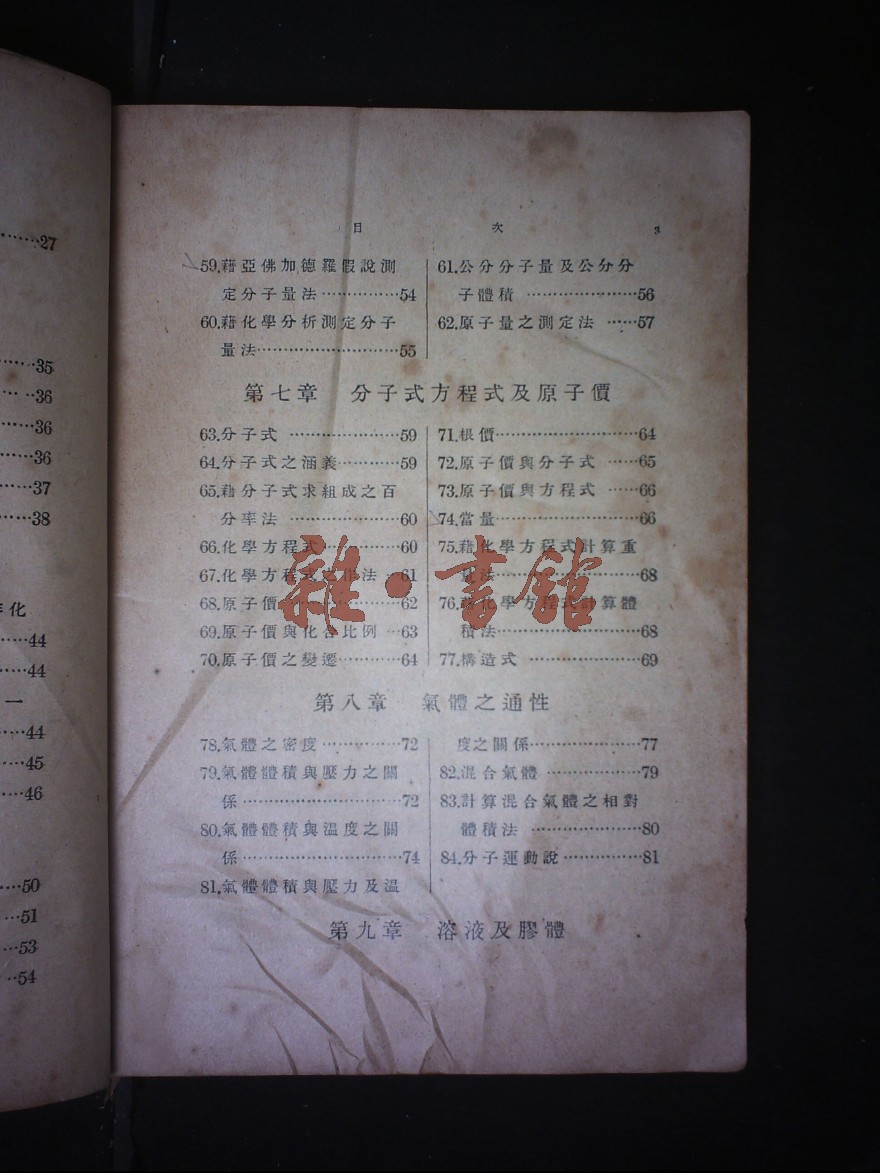 27
35
36
36
36
37
38
化
44
44
一
44
45
46
50
51
53
54
目 次 3
59.藉亞佛加德羅假說測
定分子量法……………54
60.藉化學分析測定分子
量法………………………55
61.公分分子量及公分分
子體積 …………………56
62.原子量之測定法 ……57
第七章 分子式方程式及原子價
63.分子式 …………………59
64.分子式之涵義…………59
65.藉分子式求組成之百
分率法 …………………60
66.化學方程式……………60
67.化學方程式之作法 …61
68.原子價…………………62
69.原子價與化合比例 …63
70.原子價之變遷…………64
71.根價……………………64
72.原子價與分子式 ……65
73.原子價與方程式 ……66
74.當量……………………66
75.藉化學方程式計算重
量法……………………68
76.藉化學方程式計算體
積法……………………68
77.構造式 …………………69
第八章 氣體之通性
78.氣體之密度 ……………72
79.氣體體積與壓力之關
係………………………72
80.氣體體積與溫度之關
係………………………74
81.氣體體積與壓力及溫
度之關係…………………77
82.混合氣體 ………………79
83.計算混合氣體之相對
體積法 …………………80
84.分子運動說……………81
第九章 溶液及膠體
雜·書館